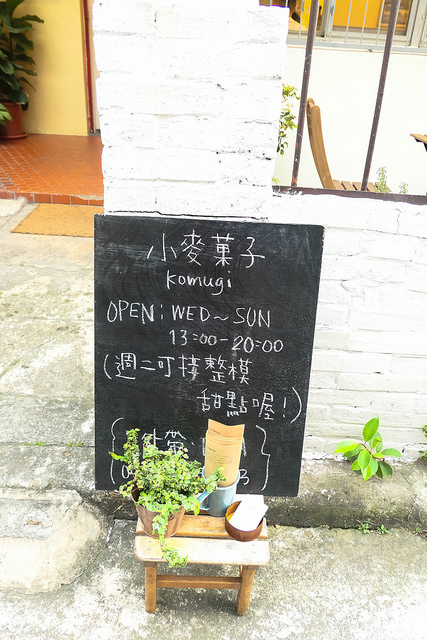 小麥菓子
komugi
OPEN: WED~SUN
13:00-20:00
(週二可接整模
甜點喔!)
外帶: